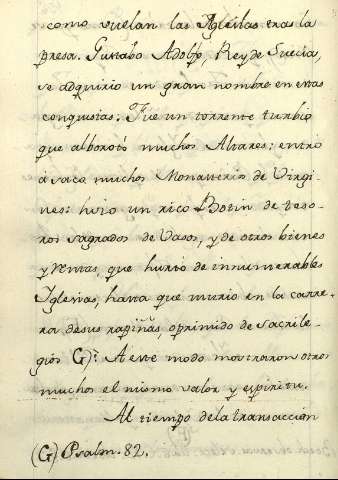 como vuelan las Aguilas tras la
presa. Gustabo Adolfo, Rey de Suecia,
se adquirio un gran nombre en estas
conquistas. Fue un torrente turbio
que alborotó muchos Altares: entró
á saco muchos Monasterios de Virgi-
nes: hizo un rico Botin de teso-
ros sagrados de Vasos, y de otros bienes
y rentas, que hurtó de innumerables
Iglesias, hasta que murio en la carre-
ra de sus rapiñas, oprimido de sacrile-
gios (G): A este modo mostraron otros
muchos el mismo valor y espiritu.
Al tiempo de la transaccion
(G) Psalm. 82.